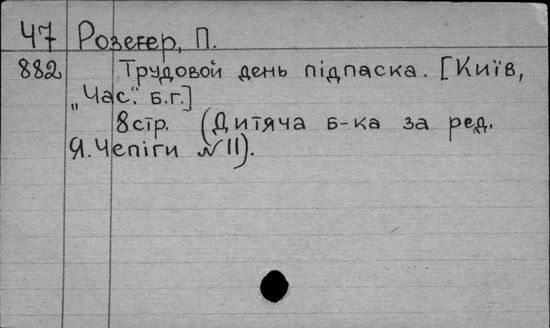 Ч7 Розеґер, П.
882 Трудовой день підпаска. [Київ,
„Час". б.г.]
8стр. (Дитяча б-ка за ред.
Я.Чепіги №11).